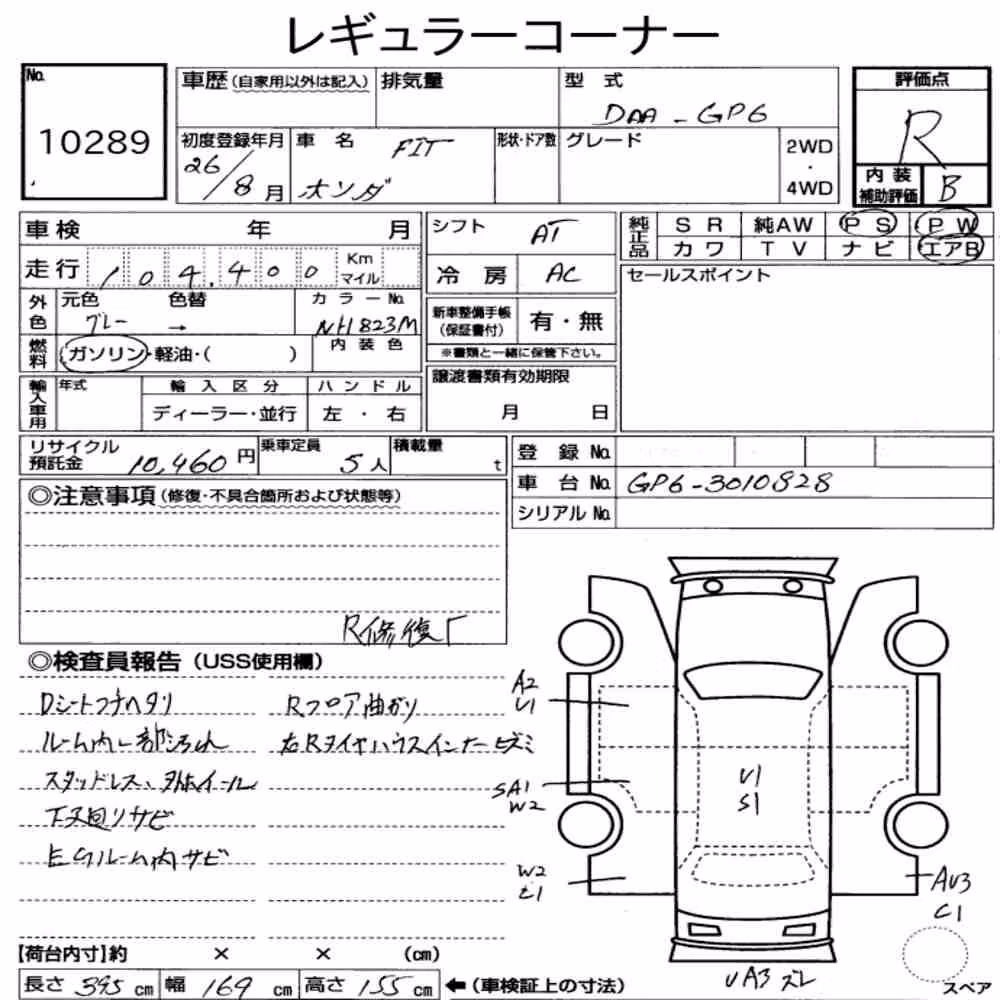 レギュラーコーナー
No.
10289
車歴(自家用以外は記入)
排気量
型式
DAA-GP6
評価点
R
初度登録年月
26/8月
車名
FIT
ホンダ
形状・ドア数
グレード
2WD
・
4WD
内装
補助評価
B
車検 年 月
走行 104,400 Km
マイル
シフト AT
冷房 AC
純正品
SR 純AW PS PW
カワ TV ナビ エアB
セールスポイント
外色
元色 色替 カラーNo.
グレー → NH823M
燃料
ガソリン・軽油・( )
内装色
新車整備手帳
(保証書付)
有・無
※書類と一緒に保管下さい。
譲渡書類有効期限
月 日
輸入車用
年式
輸入区分
ハンドル
ディーラー・並行
左・右
リサイクル
預託金
10,460円
乗車定員
5人
積載量
t
登録No.
車台No. GP6-3010828
シリアルNo.
◎注意事項(修復・不具合箇所および状態等)
R修復
◎検査員報告(USS使用欄)
Dシートコゲヘタリ
Rフロア曲がり
ルーム内一部汚れ
右Rタイヤハウスインナーヒズミ
スタッドレス、外ホイール
下廻りサビ
EGルーム内サビ
A2
U1
SA1
W2
U1
S1
W2
E1
AU3
C1
UA3 ズレ
スペア
【荷台内寸】約 × × (cm)
長さ 395 cm 幅 169 cm 高さ 155 cm ←(車検証上の寸法)